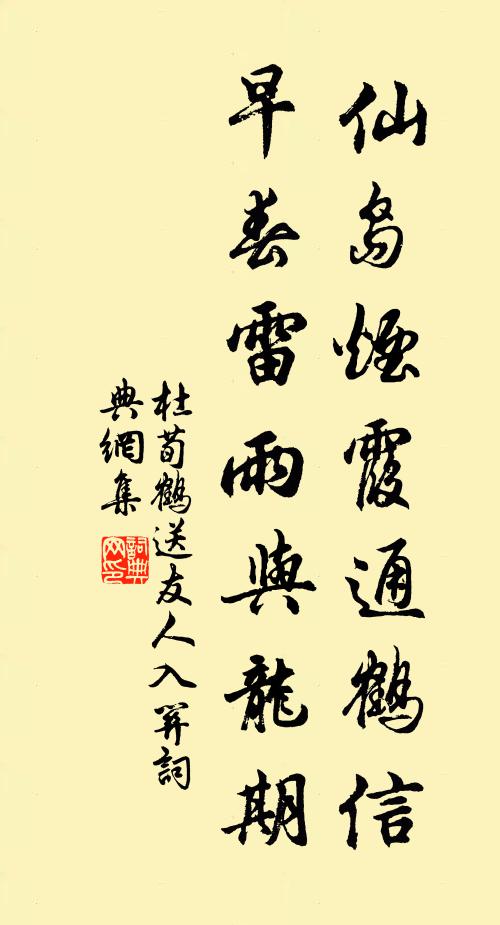 仙島煙霞通鶴信
早春雷雨與龍期
杜荀鶴送友人入關詞
典網集
詞典
网印